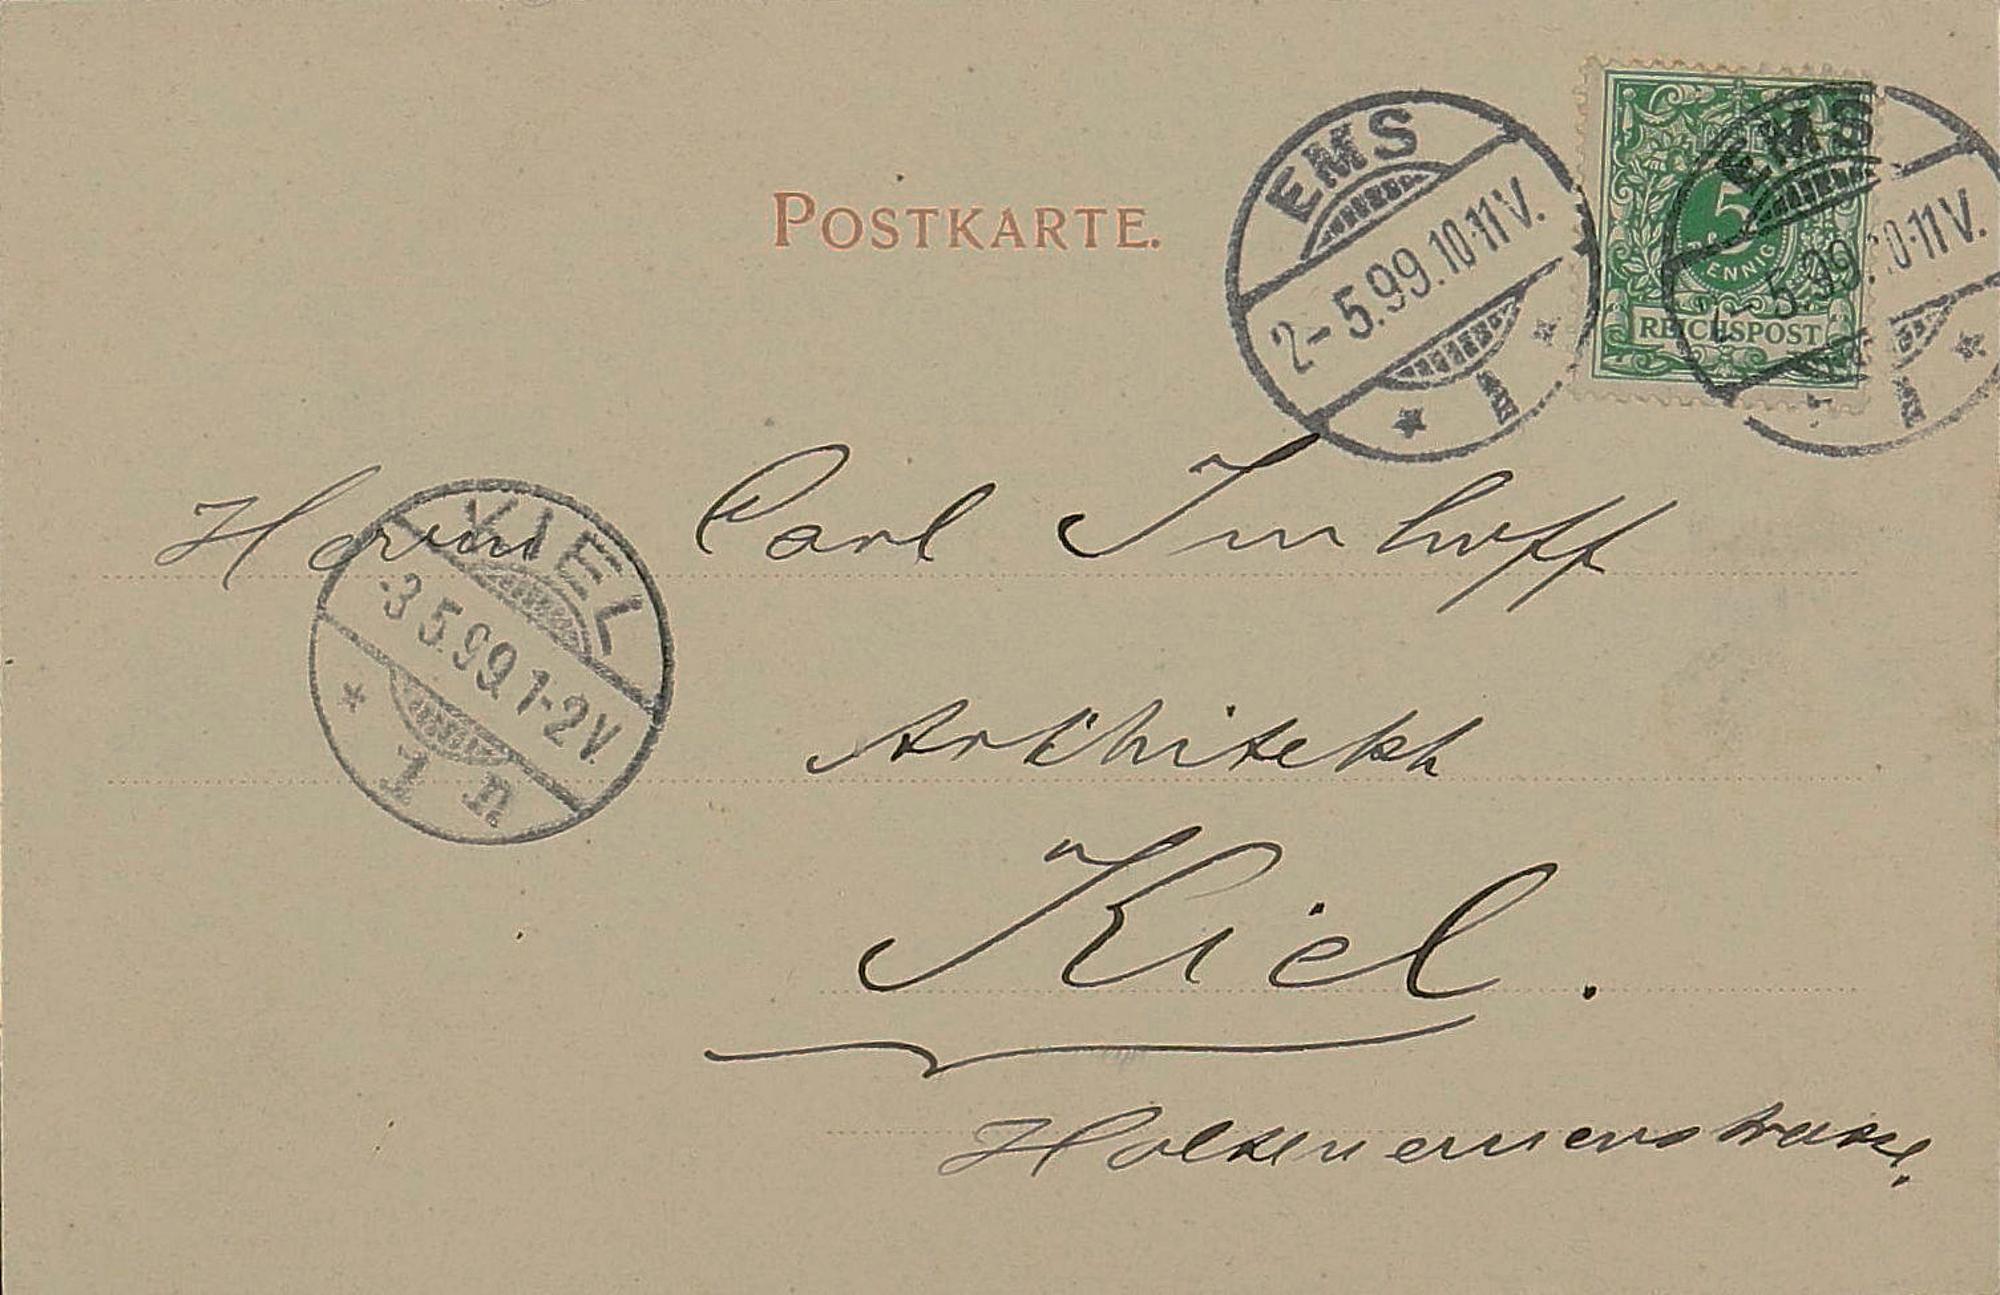 POSTKARTE.
EMS
2-5.99.10-11V.
* 1 *
5
PFENNIG
REICHSPOST
EMS
2-5.99.10-11V.
* 1 *
Herrn Carl Imhoff
KIEL
-3 5.99.1-2V.
* 1 n
Architekt
Kiel.